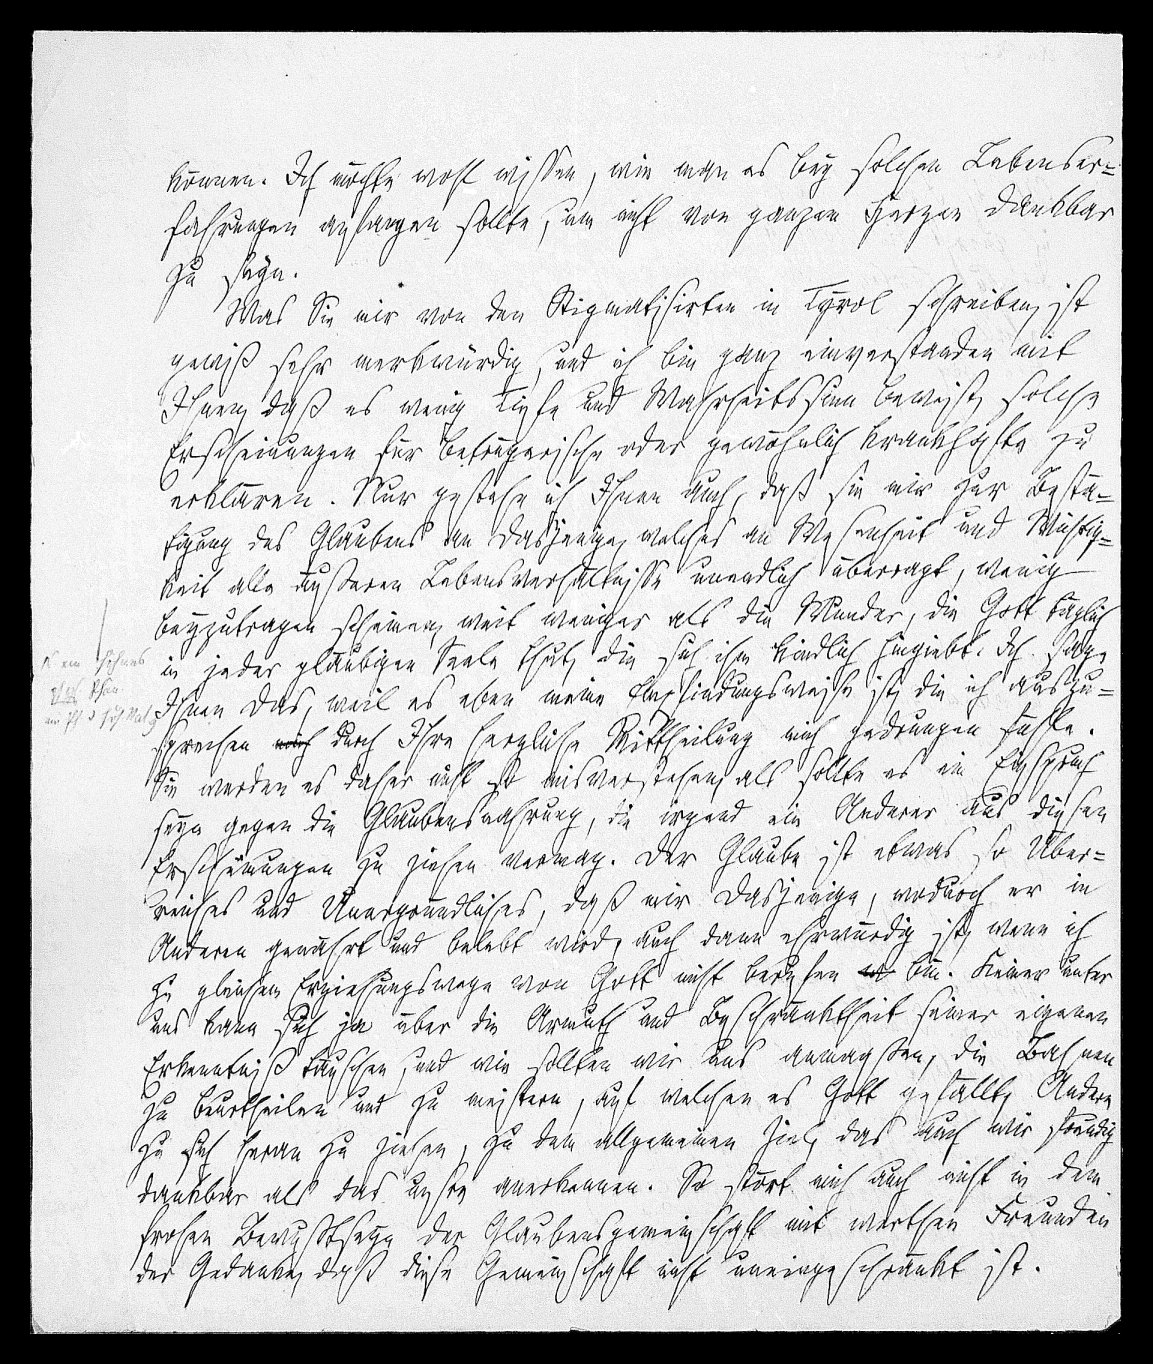 können. Ich möchte wohl wissen, wie man es bey solchen Lebenser=
fahrungen anfangen sollte, um nicht von ganzen Herzen dankbar
zu seyn.
Was Sie mir von den Stigmatisirten in Tyrol schreiben, ist
gewiß sehr merkwürdig, und ich bin ganz einverstanden mit
Ihnen, daß es wenig Tiefe und Wahrheitssinn beweist, solche
Erscheinungen für betrügerische oder gewöhnlich krankhafte zu
erklären. Nur gestehe ich Ihnen auch, daß sie mir zur Bestä=
tigung des Glaubens an dasjenige, welches an Wesenheit und Wichtig=
keit alle äußeren Lebensverhältnisse unendlich überragt, wenig
beyzutragen scheinen, weit weniger als die Wunder, die Gott täglich
in jeder gläubigen Seele thut, die sich ihm kindlich hingiebt. Ich sage
Ihnen das, weil es eben meine Empfindungsweise ist, die ich auszu=
sprechen mich durch Ihre herzliche Mittheilung mich gedrungen fühle.
Sie werden es daher nicht so misverstehen, als sollte es ein Einspruch
seyn gegen die Glaubensnahrung, die irgend ein Anderer aus diesen
Erscheinungen zu ziehen vermag. Der Glaube ist etwas so Über=
reiches und Unergründliches, daß mir dasjenige, wodurch er in
Anderen genährt und belebt wird, auch dann ehrwürdig ist, wenn ich
zu gleichem Erziehungswege von Gott nicht berufen bin. Keiner unter
uns kann sich ja über die Armuth und Beschränktheit seiner eigenen
Erkenntniß täuschen, und wie sollten wir uns anmaßen, die Bahnen
zu beurtheilen und zu meistern, auf welchen es Gott gefällt, Andere
zu sich heran zu ziehen, zu dem allgemeinen Ziel, das auch wir freudig
dankbar als das unsre anerkennen. So stört mich auch nicht in dem
frohen Bewußtseyn der Glaubensgemeinschaft mit werthen Freunden
der Gedanke, daß diese Gemeinschaft nicht uneingeschränkt ist.